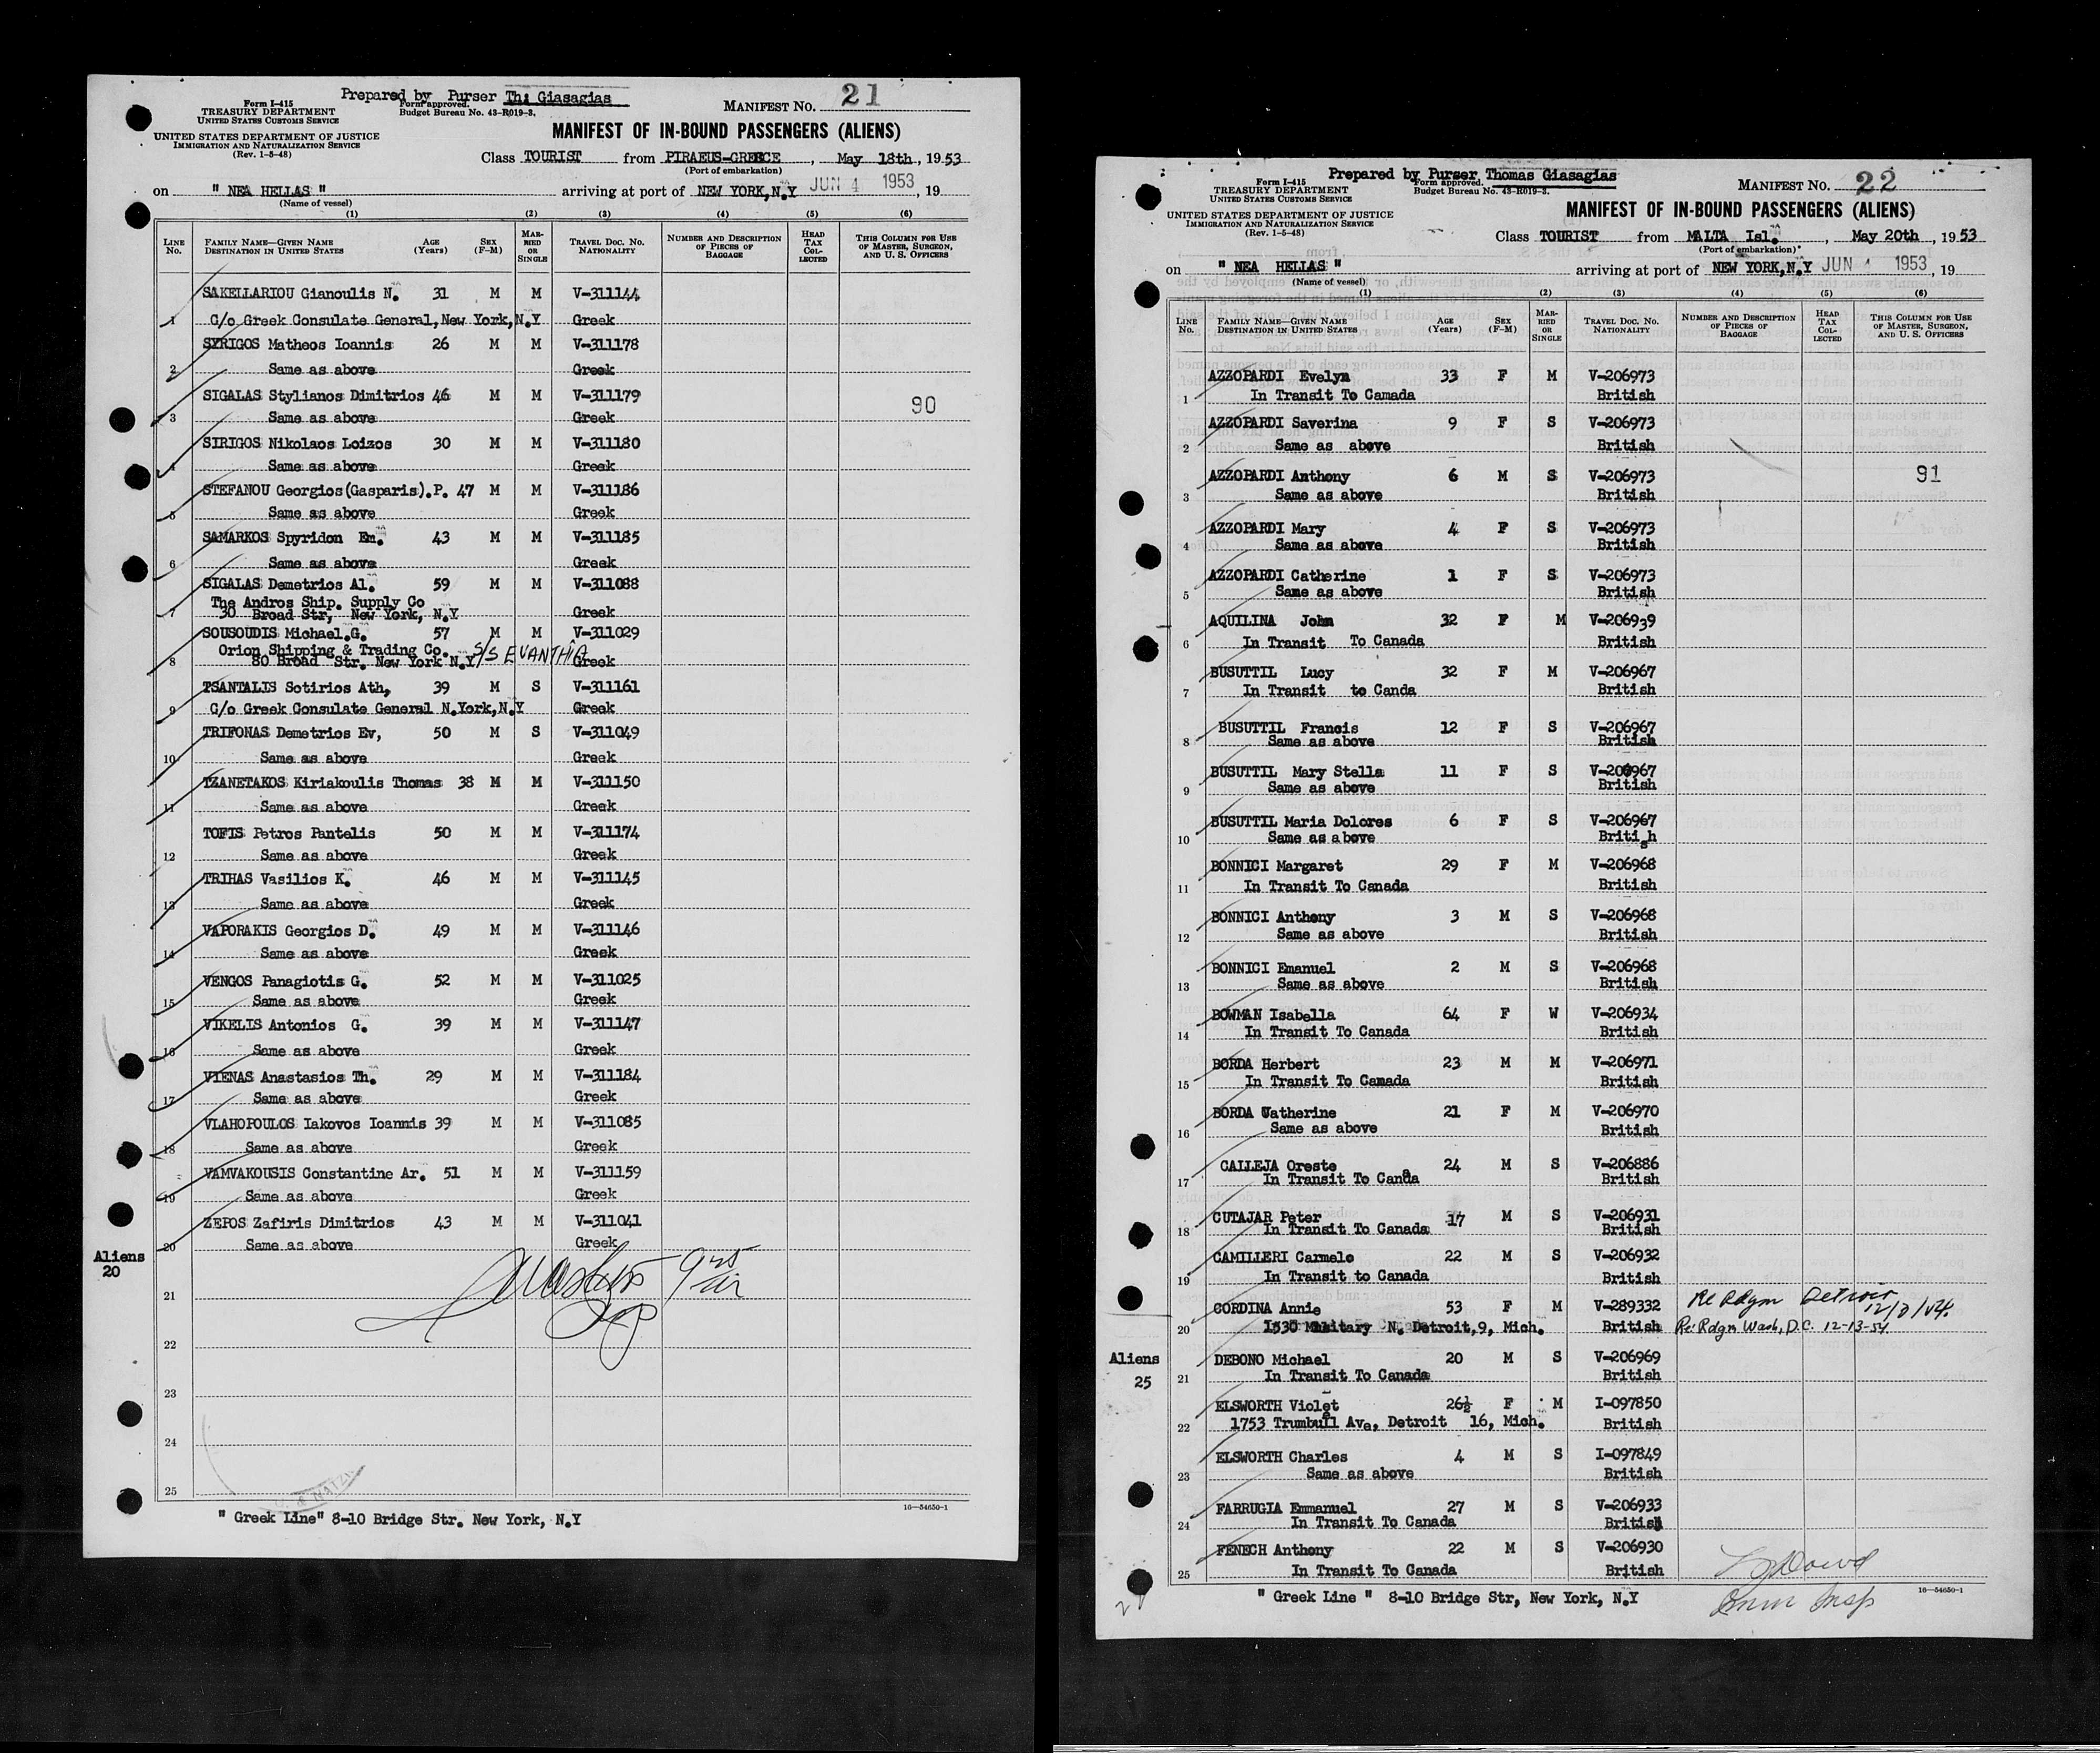 Prepared by Purser Th: Giasagias
Form I-415
TREASURY DEPARTMENT
UNITED STATES CUSTOMS SERVICE
Form approved.
Budget Bureau No. 43-R019-3.
MANIFEST NO. 21
UNITED STATES DEPARTMENT OF JUSTICE
IMMIGRATION AND NATURALIZATION SERVICE
(Rev. 1-5-48)
MANIFEST OF IN-BOUND PASSENGERS (ALIENS)
Class TOURIST from PIRAEUS-GREECE, May 18th, 1953
(Port of embarkation)
on " NEA HELLAS " arriving at port of NEW YORK,N.Y JUN 4 1953, 19
(Name of vessel)
(1) (2) (3) (4) (5) (6)
LINE No. FAMILY NAME—GIVEN NAME DESTINATION IN UNITED STATES AGE (Years) SEX (F-M) MARRIED OR SINGLE TRAVEL DOC. NO. NATIONALITY NUMBER AND DESCRIPTION OF PIECES OF BAGGAGE HEAD TAX COLLECTED THIS COLUMN FOR USE OF MASTER, SURGEON, AND U. S. OFFICERS
SAKELLARIOU Gianoulis N. 31 M M V-311144
1 C/o Greek Consulate General,New York,N.Y Greek
SYRIGOS Matheos Ioannis 26 M M V-311178
2 Same as above Greek
SIGALAS Stylianos Dimitrios 46 M M V-311179 90
3 Same as above Greek
SIRIGOS Nikolaos Loizos 30 M M V-311180
4 Same as above Greek
STEFANOU Georgios(Gasparis).P. 47 M M V-311186
5 Same as above Greek
SAMARKOS Spyridon Em. 43 M M V-311185
6 Same as above Greek
SIGALAS Demetrios Al. 59 M M V-311088
The Andros Ship. Supply Co
7 30 Broad Str, New York, N.Y Greek
SOUSOUDIS Michael.G. 57 M M V-311029
Orion Shipping & Trading Co. S/S EVANTHIA
8 80 Broad Str. New York N.Y Greek
TSANTALIS Sotirios Ath, 39 M S V-311161
9 C/o Greek Consulate General N.York,N.Y Greek
TRIFONAS Demetrios Ev, 50 M S V-311049
10 Same as above Greek
TZANETAKOS Kiriakoulis Thomas 38 M M V-311150
11 Same as above Greek
TOFIS Petros Pantelis 50 M M V-311174
12 Same as above Greek
TRIHAS Vasilios K. 46 M M V-311145
13 Same as above Greek
VAPORAKIS Georgios D. 49 M M V-311146
14 Same as above Greek
VENGOS Panagiotis G. 52 M M V-311025
15 Same as above Greek
VIKELIS Antonios G. 39 M M V-311147
16 Same as above Greek
VIENAS Anastasios Th. 29 M M V-311184
17 Same as above Greek
VLAHOPOULOS Iakovos Ioannis 39 M M V-311085
18 Same as above Greek
VAMVAKOUSIS Constantine Ar. 51 M M V-311159
19 Same as above Greek
ZEPOS Zafiris Dimitrios 43 M M V-311041
20 Same as above Greek
Aliens
20
21
22
23
24
25
16—54650-1
" Greek Line" 8-10 Bridge Str. New York, N.Y
Prepared by Purser Thomas Giasagias
Form I-415
TREASURY DEPARTMENT
UNITED STATES CUSTOMS SERVICE
Form approved.
Budget Bureau No. 43-R019-3.
MANIFEST NO. 22
UNITED STATES DEPARTMENT OF JUSTICE
IMMIGRATION AND NATURALIZATION SERVICE
(Rev. 1-5-48)
MANIFEST OF IN-BOUND PASSENGERS (ALIENS)
Class TOURIST from MALTA Isl., May 20th, 1953
(Port of embarkation)
on " NEA HELLAS " arriving at port of NEW YORK,N.Y JUN 4 1953, 19
(Name of vessel)
(1) (2) (3) (4) (5) (6)
LINE No. FAMILY NAME—GIVEN NAME DESTINATION IN UNITED STATES AGE (Years) SEX (F-M) MARRIED OR SINGLE TRAVEL DOC. NO. NATIONALITY NUMBER AND DESCRIPTION OF PIECES OF BAGGAGE HEAD TAX COLLECTED THIS COLUMN FOR USE OF MASTER, SURGEON, AND U. S. OFFICERS
AZZOPARDI Evelyn 33 F M V-206973
1 In Transit To Camada British
AZZOPARDI Saverina 9 F S V-206973
2 Same as above British
AZZOPARDI Anthony 6 M S V-206973 91
3 Same as above British
AZZOPARDI Mary 4 F S V-206973
4 Same as above British
AZZOPARDI Catherine 1 F S V-206973
5 Same as above British
AQUILINA John 32 F M V-206939
6 In Transit To Canada British
BUSUTTIL Lucy 32 F M V-206967
7 In Transit to Canda British
BUSUTTIL Francis 12 F S V-206967
8 Same as above British
BUSUTTIL Mary Stella 11 F S V-206967
9 Same as above British
BUSUTTIL Maria Dolores 6 F S V-206967
10 Same as above British
BONNICI Margaret 29 F M V-206968
11 In Transit To Canada British
BONNICI Anthony 3 M S V-206968
12 Same as above British
BONNICI Emanuel 2 M S V-206968
13 Same as above British
BOWMAN Isabella 64 F W V-206934
14 In Transit To Canada British
BORDA Herbert 23 M M V-206971
15 In Transit To Camada British
BORDA Catherine 21 F M V-206970
16 Same as above British
CALLEJA Oreste 24 M S V-206886
17 In Transit To Canada British
CUTAJAR Peter 17 M S V-206931
18 In Transit To Canada British
CAMILLERI Carmelo 22 M S V-206932
19 In Transit to Canada British
CORDINA Annie 53 F M V-289332 Re Rdgm Detroit 12/8/54.
20 1530 Military N. Detroit,9, Mich. British Re: Rdgm Wash, D.C. 12-13-54
Aliens
25
DEBONO Michael 20 M S V-206969
21 In Transit To Canada British
ELSWORTH Violet 26½ F M I-097850
22 1753 Trumbull Ave, Detroit 16, Mich. British
ELSWORTH Charles 4 M S I-097849
23 Same as above British
FARRUGIA Emmanuel 27 M S V-206933
24 In Transit To Canada British
FENECH Anthony 22 M S V-206930
25 In Transit To Canada British
Imm Insp
16—54650-1
" Greek Line " 8-10 Bridge Str, New York, N.Y